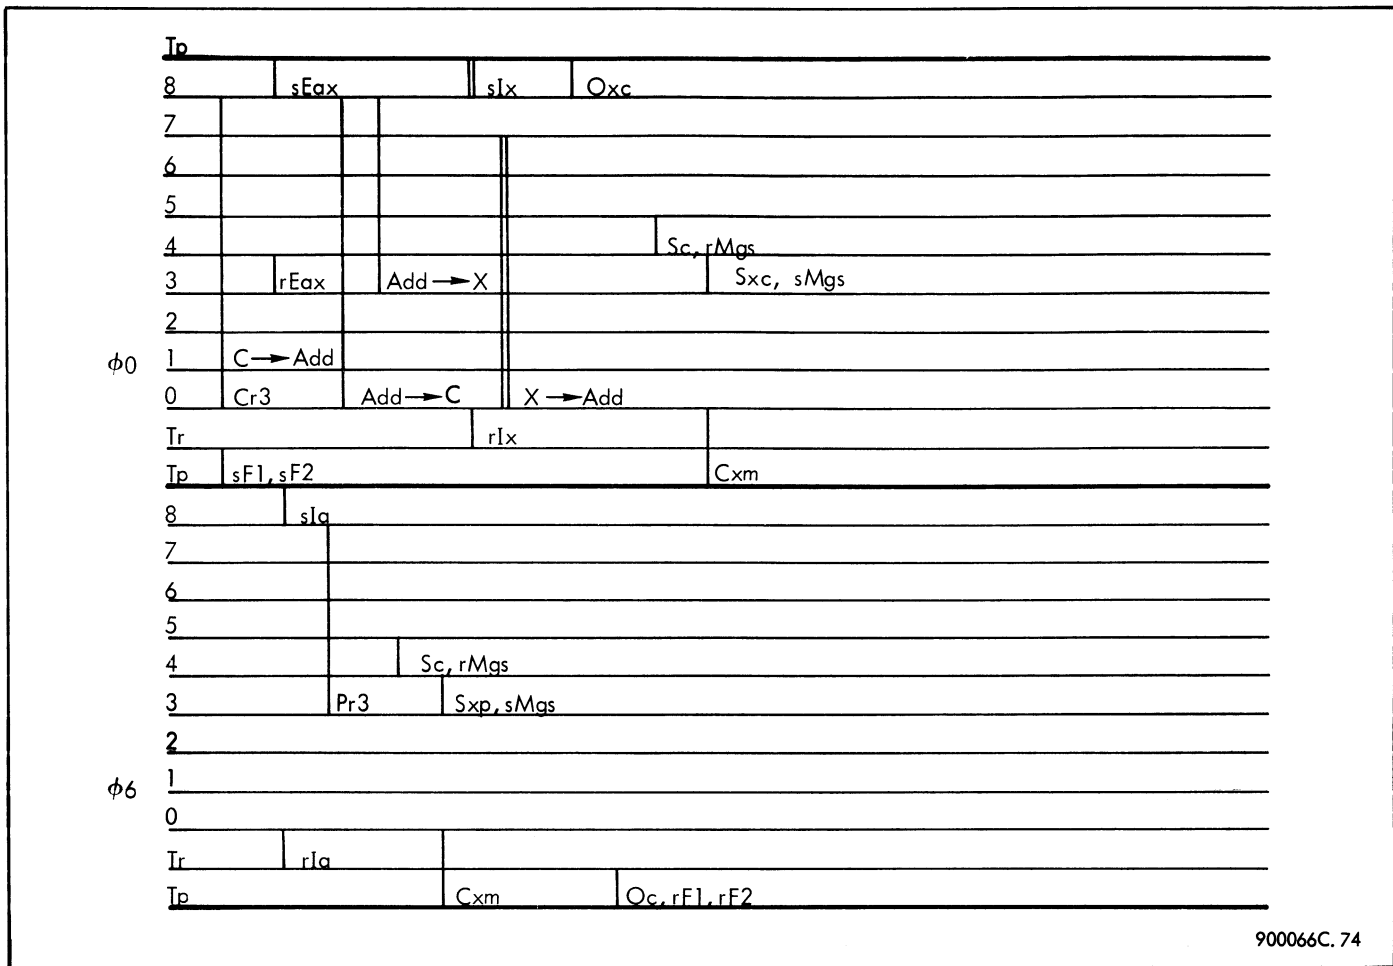 Tp
8 sEax sIx Oxc
7
6
5
4 Sc, rMgs
3 rEax Add → X Sxc, sMgs
2
ϕ0 1 C → Add
0 Cr3 Add → C X → Add
Tr rIx
Tp sF1, sF2 Cxm
8 sIa
7
6
5
4 Sc, rMgs
3 Pr3 Sxp, sMgs
2
ϕ6 1
0
Tr rIa
Tp Cxm Oc, rF1, rF2
900066C. 74